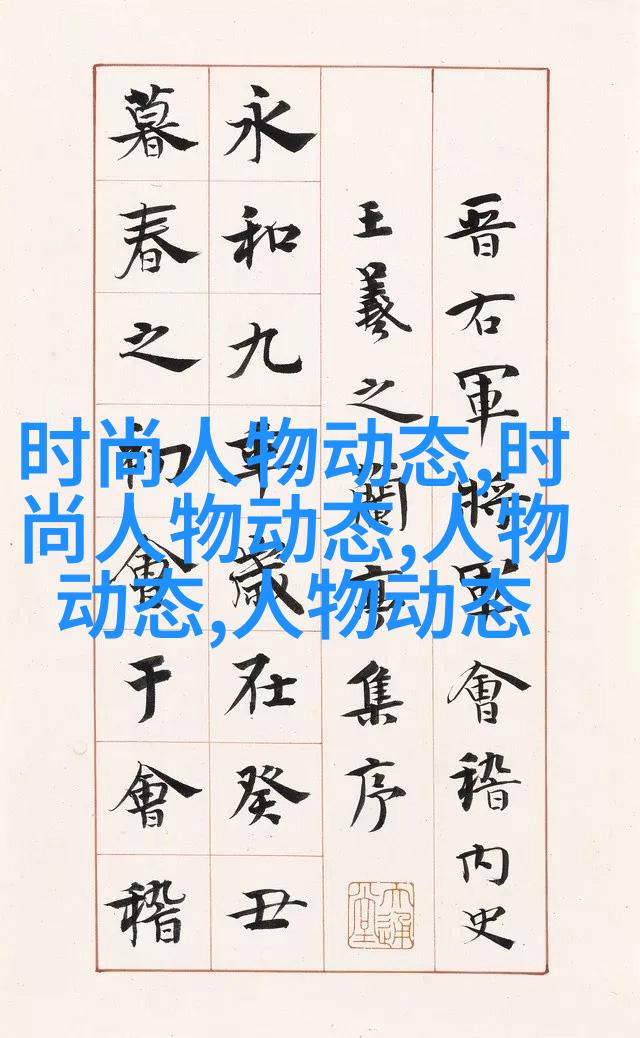 晋右軍將軍會稽内史
王羲之蘭亭集序
永和九年歲在癸丑
暮春之初會于會稽
时尚人物动态,时
尚人物动态,人物
动态,人物动态